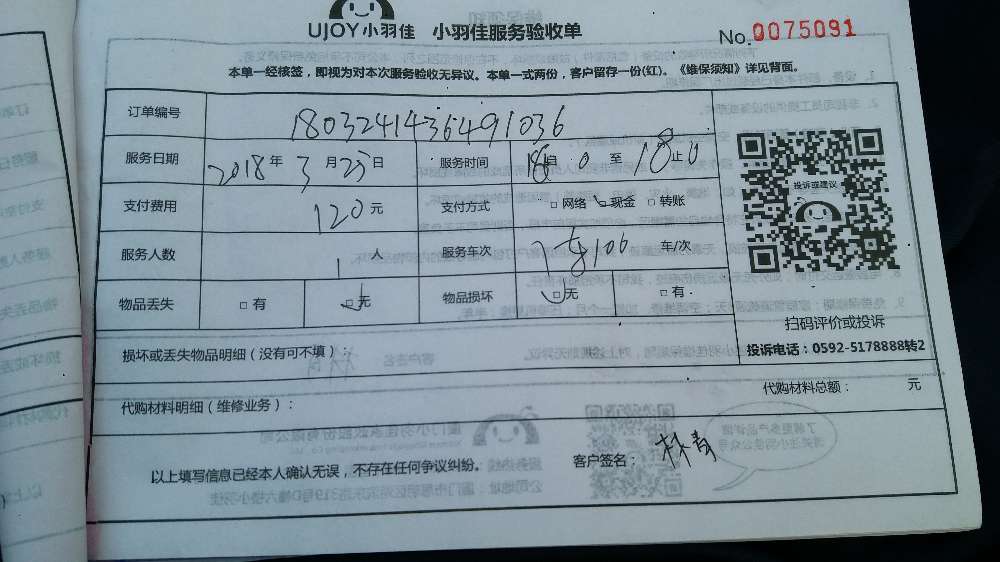 UJOY小羽佳 小羽佳服务验收单
No.0075091
本单一经核签，即视为对本次服务验收无异议。本单一式两份，客户留存一份(红)。《维保须知》详见背面。
订单编号 180324143649 1036
服务日期 2018年3月25日 服务时间 自 0 至 18止0
支付费用 120元 支付方式 □网络 □现金 □转账
服务人数 1人 服务车次 车/次
物品丢失 □有 □无 物品损坏 □无 □有
投诉或建议
扫码评价或投诉
投诉电话：0592-5178888转2
损坏或丢失物品明细（没有可不填）：
代购材料明细（维修业务）： 代购材料总额： 元
以上填写信息已经本人确认无误，不存在任何争议纠纷。 客户签名：林青